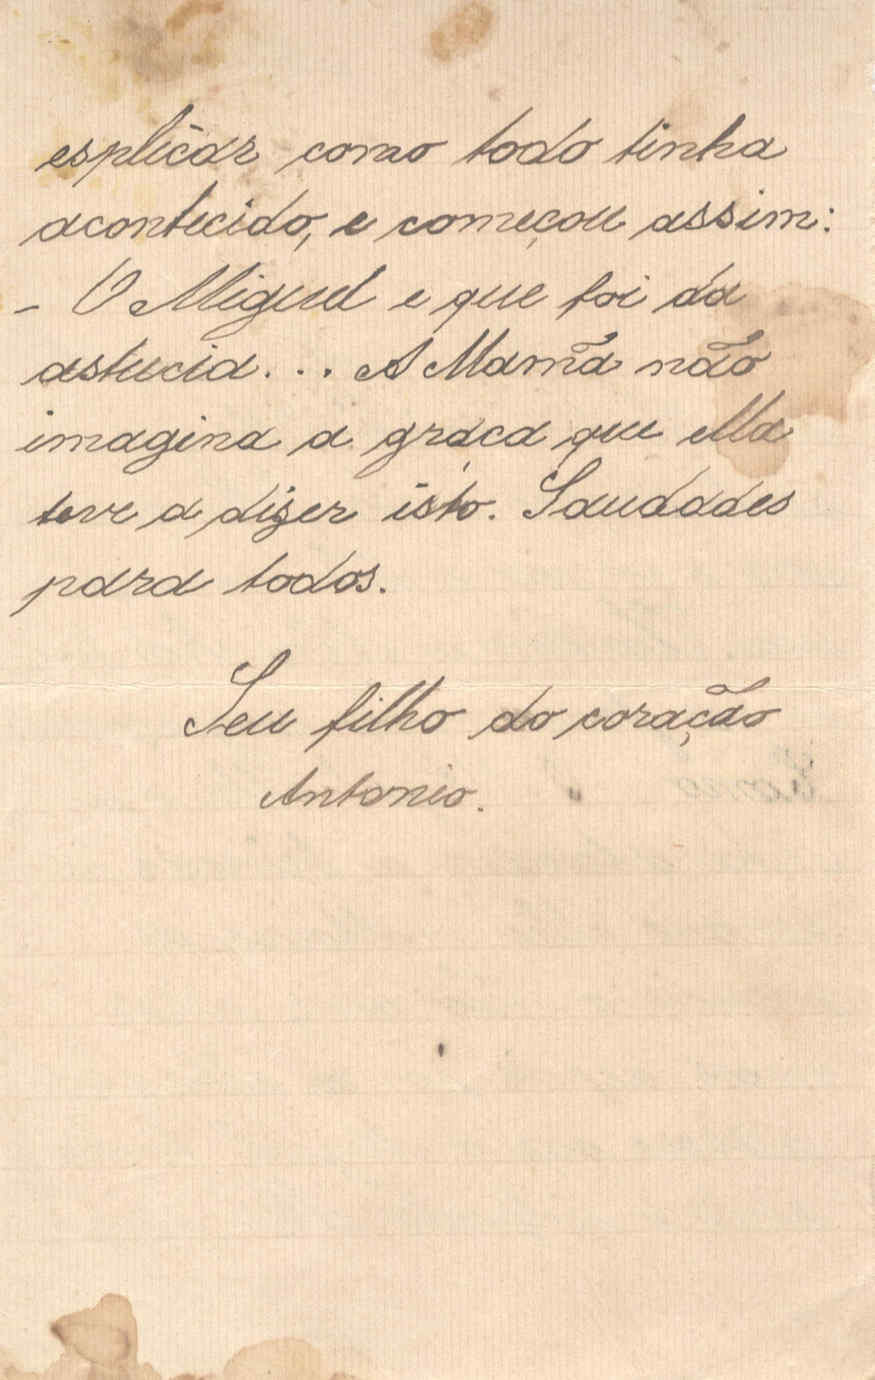 esplicar como todo tinha
acontecido, e começou assim:
- O Miguel e que foi da
astucia... A Mamã não
imagina a graça que Ella
teve a dizer isto. Saudades
para todos.
Seu filho do coração
Antonio.